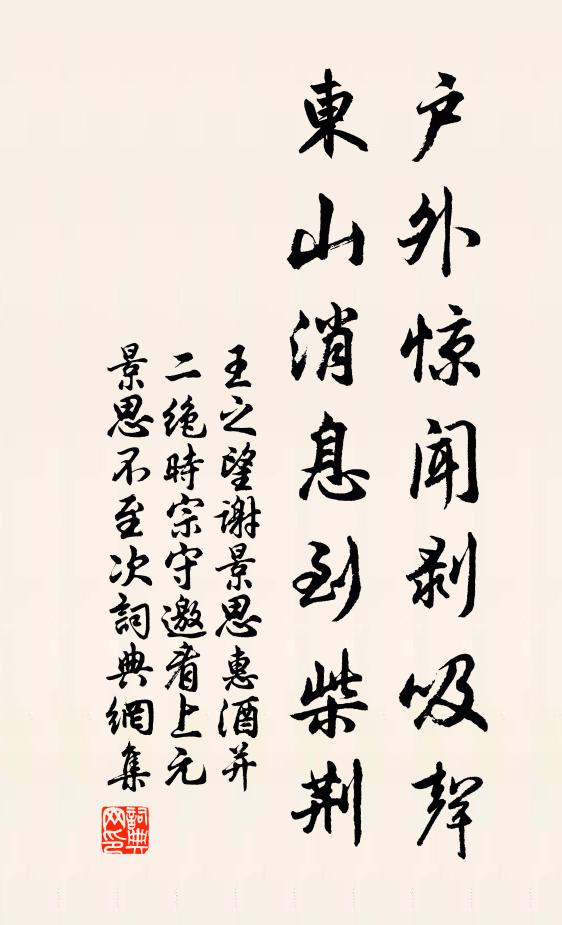 户外惊闻剥吸聲
東山消息到柴荆
王之望谢景思惠酒并
二绝時宗守邀看上元
景思不至次詞典網集
詞典
网印